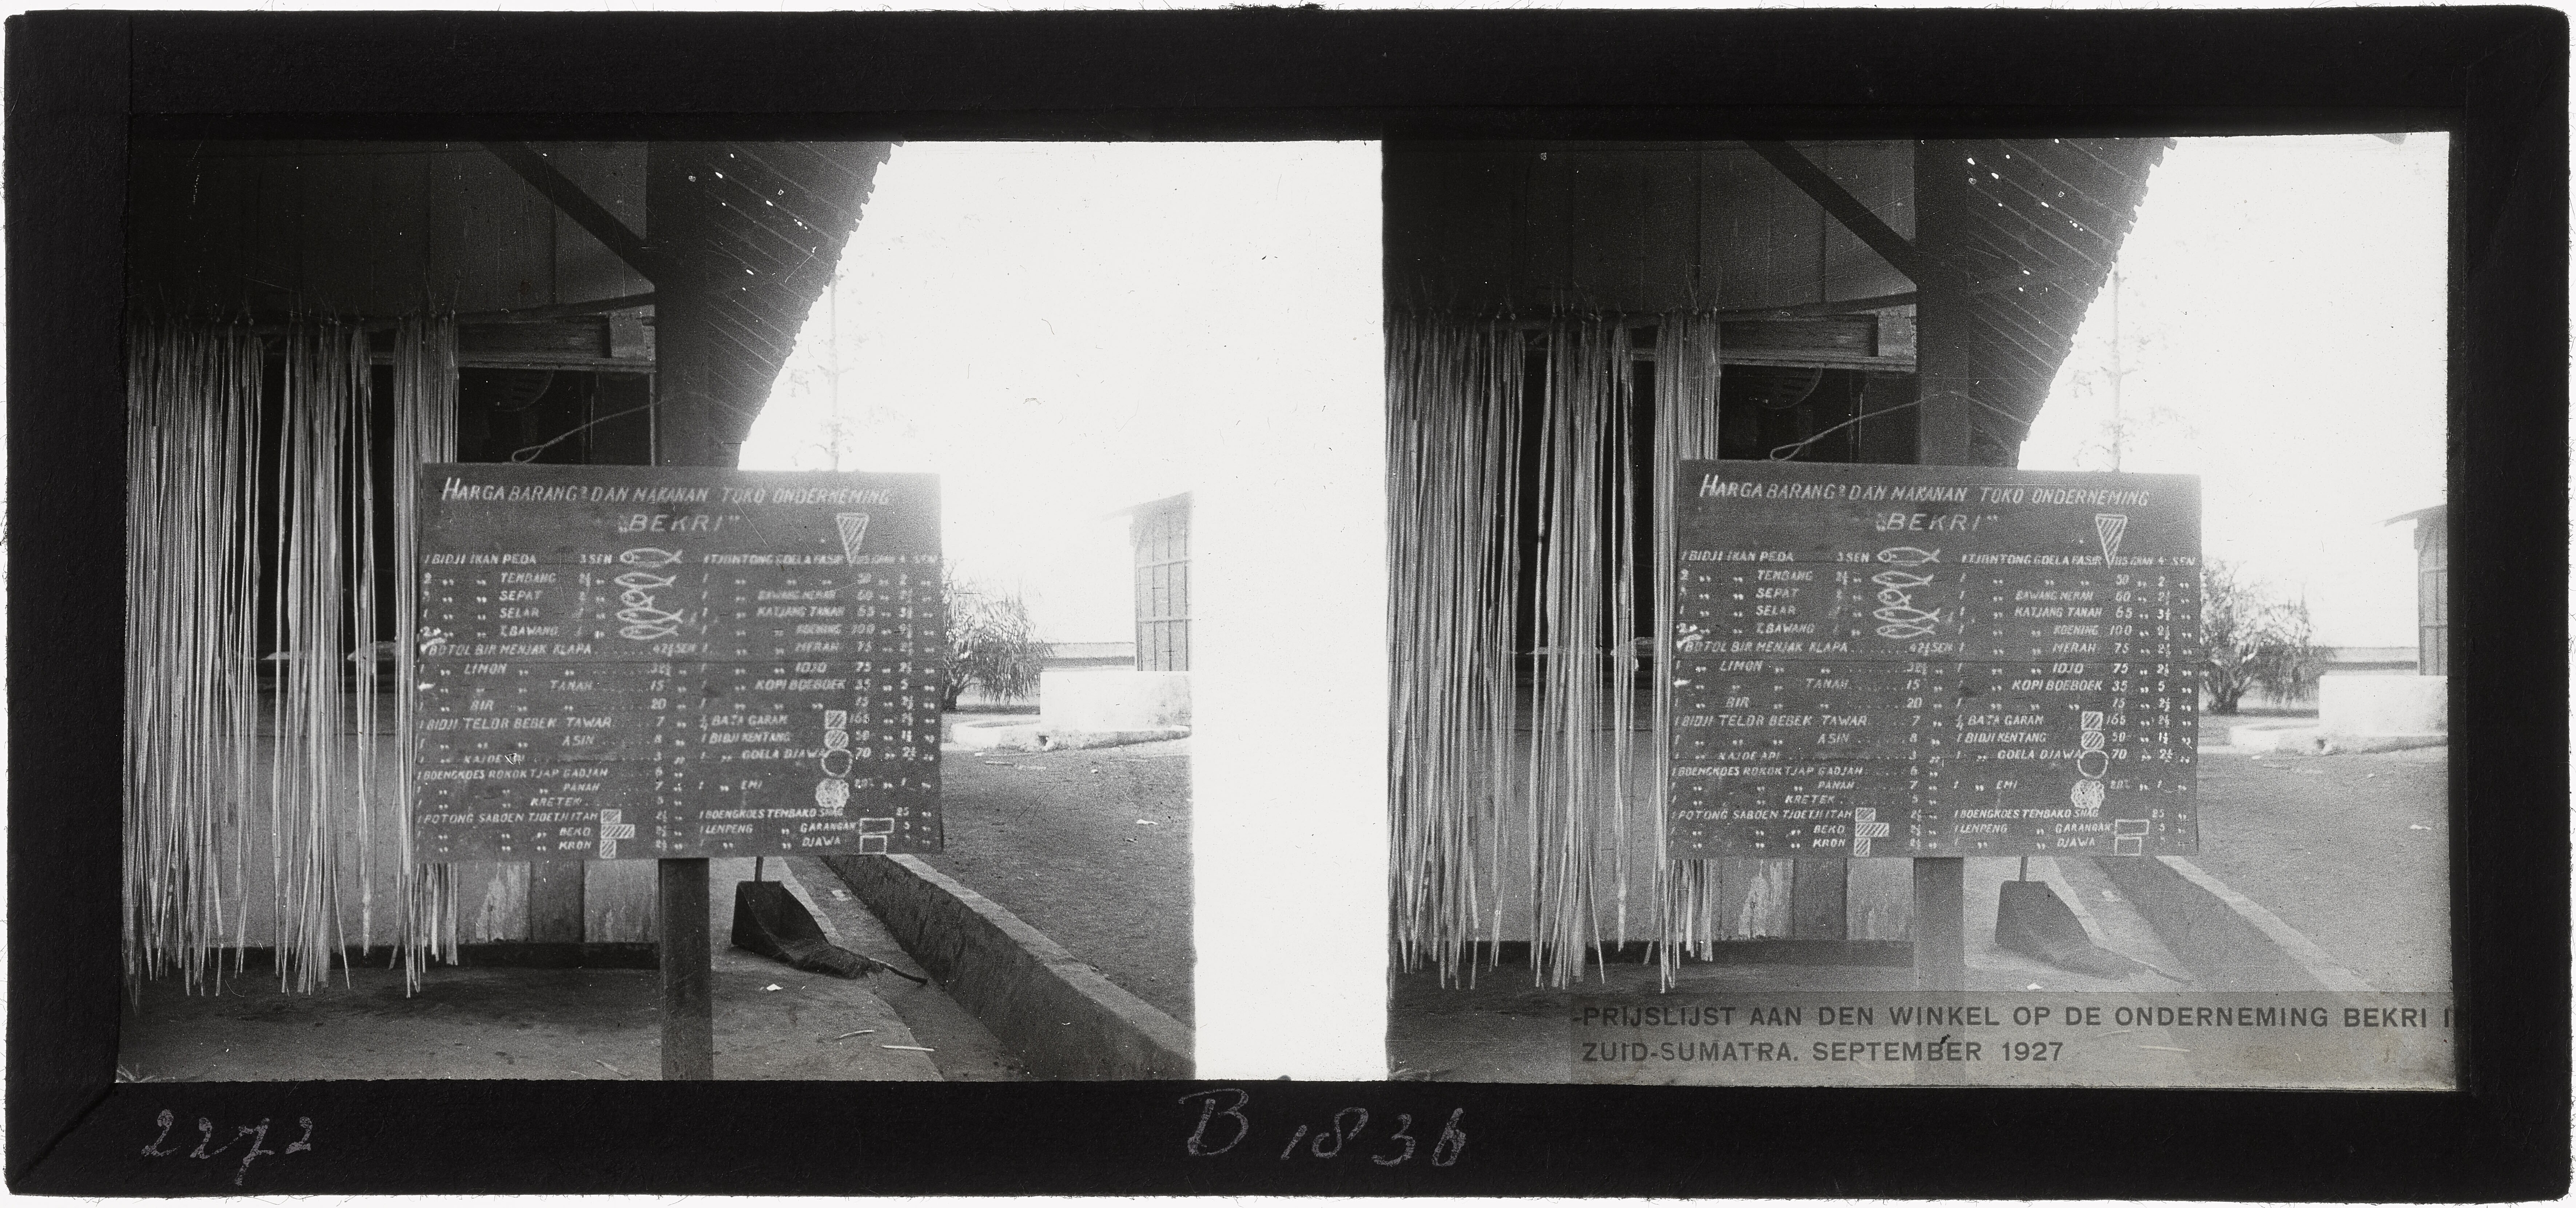 HARGA BARANG² DAN MAKANAN TOKO ONDERNEMING
"BEKRI"
1 BIDJI IKAN PEDA 3 SEN
2 „ „ TEMBANG 2½ „
„ „ SEPAT
1 „ „ SELAR
2 „ „ T. BAWANG
1 BOTOL BIR MENJAK KLAPA ..... 42½ SEN
1 „ LIMON „ „ 32½ „
„ „ TANAH ..... 15 „
„ BIR „ „ 20 „
1 BIDJI TELOR BEBEK TAWAR ... 7 „
1 „ „ „ ASIN ... 8 „
1 „ KAJOE API ... 3 „
1 BOENGKOES ROKOK TJAP GADJAH ... 6 „
1 „ „ „ PANAH ... 7 „
1 „ „ KRETEK ... 5 „
1 POTONG SABOEN TJOETJI ITAM 2½ „
1 „ „ BEKO 2½ „
1 „ „ KRON 2½ „
1 TJONTONG GOELA PASIR GRAM 4 SEN
1 „ „ „ 50 „ 2 „
1 „ BAWANG MERAH 60 „ 2½ „
1 „ KATJANG TANAH 65 „ 3½ „
1 „ „ KOENING 100 „ 2½ „
1 „ „ MERAH 75 „ 2½ „
1 „ „ IDJO 75 „ 2½ „
1 „ KOPI BOEBOEK 35 „ 5 „
1 „ „ „ 15 „ 2½ „
½ BATA GARAM 165 „ 2½ „
1 BIDJI KENTANG 50 „ 1½ „
1 „ GOELA DJAWA 70 „ 2½ „
1 „ EMI „ 1 „
1 BOENGKOES TEMBAKO SHAG 25 „
1 LENPENG „ GARANGAN 5 „
1 „ „ DJAWA
PRIJSLIJST AAN DEN WINKEL OP DE ONDERNEMING BEKRI
ZUID-SUMATRA. SEPTEMBER 1927
2272
B 1836